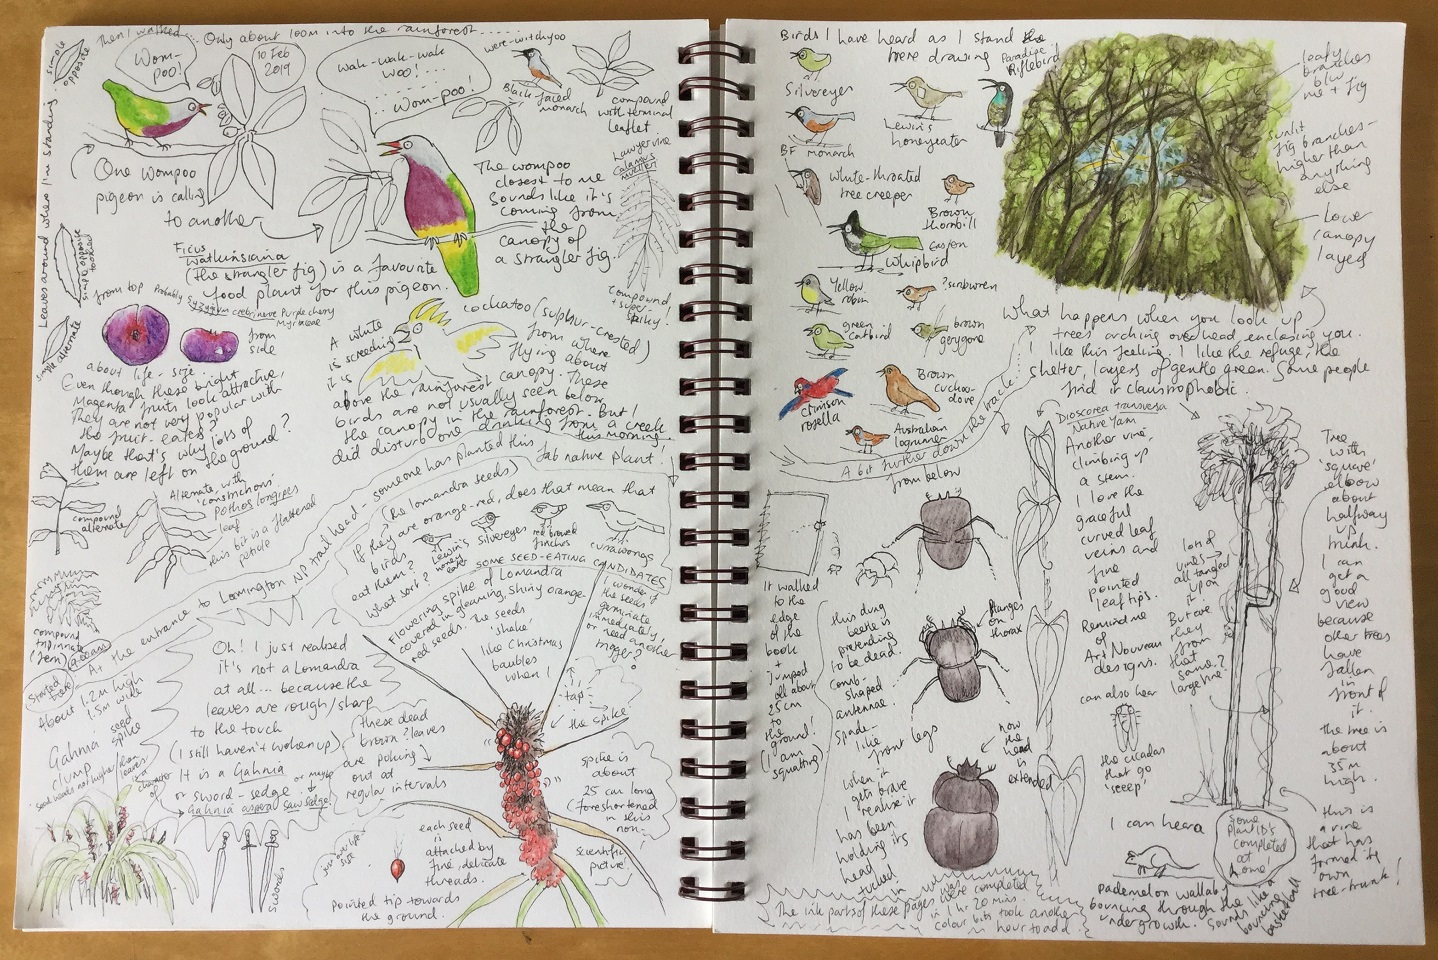 Then I walked... Only about 100m into the rainforest........
simple opposite
Wom-
poo!
10 Feb
2019
wak-wak-wak
woo!....
.... Wom-poo!
were-witchyoo
Black faced
monarch
compound
with terminal
leaflet.
Leaves around where I'm standing.
One Wompoo
pigeon is calling
to another
The wompoo
closest to me
sounds like it's
coming from
the
canopy of
a strangler fig.
Lawyer vine
Calamus
muelleri
compound
+ super-
spiky!
Ficus
watkinsiana
(the strangler fig) is a favourite
food plant for this pigeon.
simple opposite
toothed
simple alternate
from top
Probably
Purple cherry
Myrtaceae
from
side
about life-size
Even though these bright
magenta fruits look attractive,
they are not very popular with
the fruit-eaters?
Maybe that's why lots of
them are left on the ground?
A white
is screeching
it is
cockatoo (sulphur-crested)
from where
flying about
above the rainforest canopy. These
birds are not usually seen below
the canopy in the rainforest. But I
did disturb one drinking from a creek
this morning.
compound
alternate
Alternate with
'constrictions'
Pothos longipes
leaf
this bit is a flattened
petiole
compound
bipinnate
(fern)
Started
here
9:00am
At the entrance to Lamington NP trail head - someone has planted this
fab native plant!
If they (the lomandra seeds)
are orange-red, does that mean that
birds
eat them?
What sort?
Lewin's
honey
eater
Silvereyes
red browed
finches
currawongs
SOME SEED-EATING CANDIDATES
Flowering spike of Lomandra
covered in gleaming shiny orange-
red seeds. The seeds
'shake'
like Christmas
baubles
when I
- tap -
the spike
I wonder if
the seeds
germinate
immediately,
or need another
trigger?
About 1.2m high
1.5m wide
Gahnia
clump
seed
spike
Seed heads not higher than
leaves
Oh! I just realised
it's not a Lomandra
at all... because the
leaves are rough/sharp
to the touch
(I still haven't woken up)
It is a Gahnia
or sword-sedge
or maybe
Gahnia aspera saw sedge
these dead
brown? leaves
are poking
out at
regular intervals
spike is
about
25 cm long
(foreshortened
in this
non-
scientific
picture!
swords
size
each seed
is
attached by
fine, delicate
threads.
Pointed tip towards
the ground.
Birds I have heard as I stand the
here drawing
Paradise
Riflebird
Silvereyes
Lewin's
honeyeater
BF Monarch
White-throated
tree creeper
Brown
thornbill
Eastern
Whipbird
Yellow
robin
?scrubwren
green
catbird
brown
gerygone
crimson
rosella
Brown
cuckoo-
dove
Australian
logrunner
leafy
branches
b/w
me + fig
sunlit
fig branches -
higher than
anything
else
Lower
canopy
layers
What happens when you look up
trees arching overhead, enclosing you.
I like this feeling. I like the refuge, the
shelter, layers of gentle green. Some people
find it claustrophobic.
A bit further down the track...
from below
It walked
to the
edge of
the book
+
jumped
all about
25cm
to
the
ground!
(I am
squatting)
this dung
beetle is
pretending
to be dead.
Comb-
shaped
antennae.
Spade-
like
front legs
When it
gets brave
I realise it
has been
holding its
head
tucked
in
flanges
on
thorax
now
the
head
is
extended
Dioscorea transversa
Native Yam
Another vine,
climbing up
a stem.
I love the
graceful
curved leaf
veins and
fine
pointed
leaf tips.
Remind me
of
Art Nouveau
designs.
can also hear
the cicadas
that go
'sceep'
lots of
vines
all tangled
up on
it.
But are
they
from
that
same
large vine?
Tree
with
'square'
elbow
about
halfway
up
trunk.
I can
get a
good
view
because
other trees
have
fallen
in
front of
it.
The tree is
about
35m
high.
this is
a vine
that has
formed its
own
tree-trunk!
I can hear a
Pademelon wallaby
bouncing through the
undergrowth. Sounds like a
bouncing
basketball
Some
plant ID's
completed
at
home!
The ink parts of these pages were completed
in 1 hr 20 mins.
colour bits took another
hour to add.